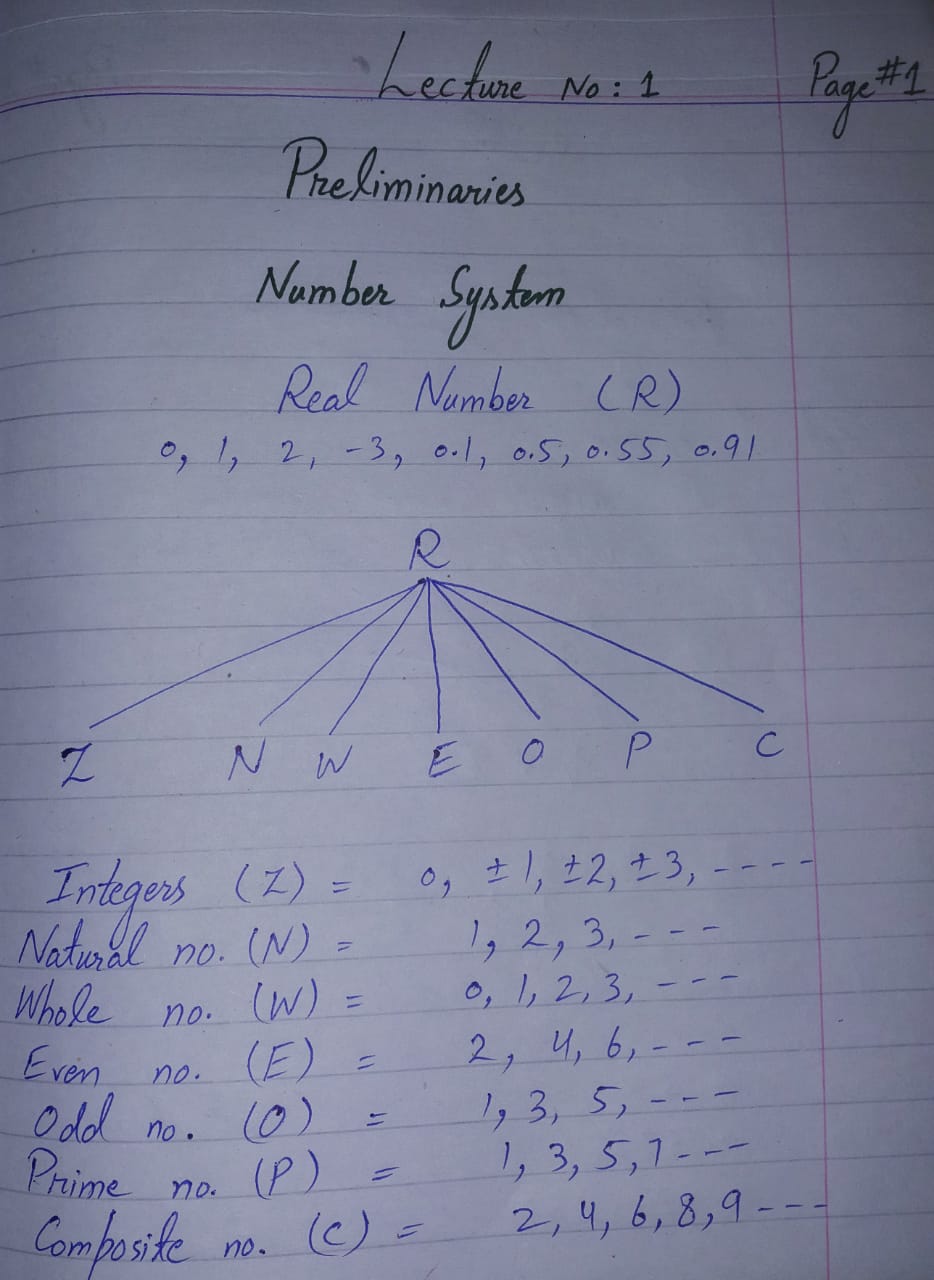 Lecture No: 1 Page #1
Preliminaries
Number System
Real Number (R)
0, 1, 2, -3, 0.1, 0.5, 0.55, 0.91
R
Z N W E O P C
Integers (Z) = 0, ±1, ±2, ±3, ----
Natural no. (N) = 1, 2, 3, ---
Whole no. (W) = 0, 1, 2, 3, ---
Even no. (E) = 2, 4, 6, ---
Odd no. (O) = 1, 3, 5, ---
Prime no. (P) = 1, 3, 5, 7 ---
Composite no. (C) = 2, 4, 6, 8, 9 ---